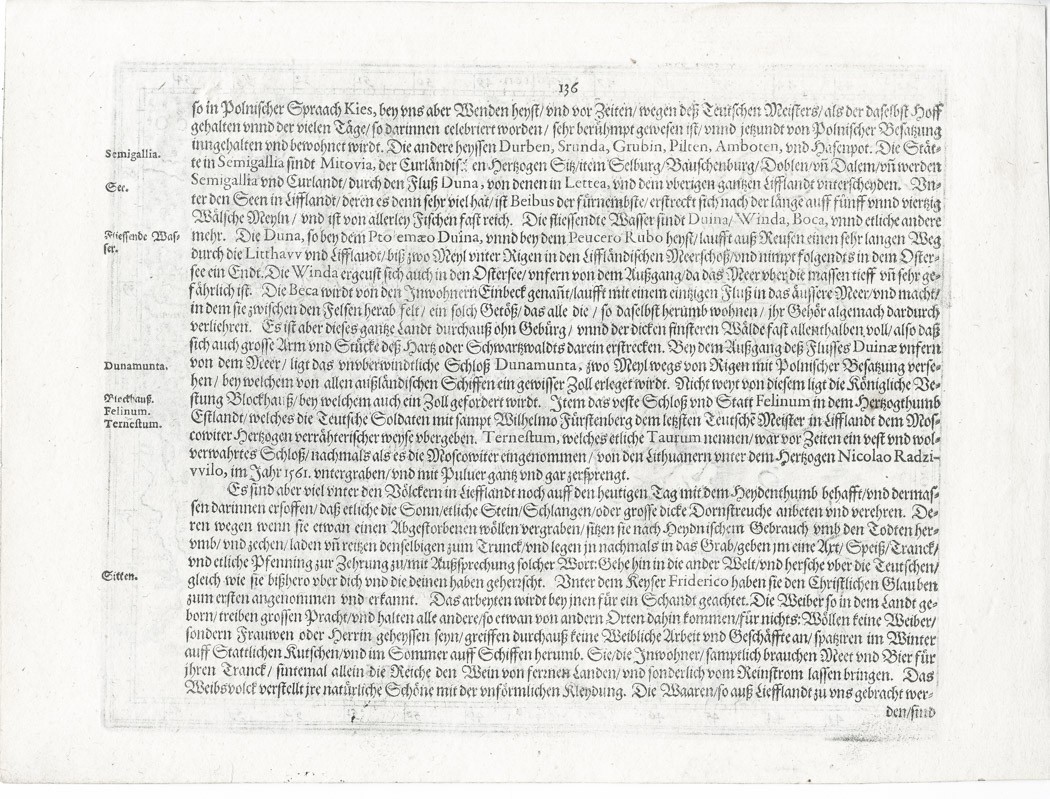 136
so in Polnischer Spraach Kies, bey vns aber Wenden heyst/ vnd vor Zeiten/ wegen deß Teutschen Meisters/ als der daselbst Hoff
gehalten vnnd der vielen Täge/ so darinnen celebriert worden/ sehr berühmpt gewesen ist/ vnnd jetzundt von Polnischer Besatzung
innhalten vnd bewohnet wirdt. Die andere heyssen Durben, Srunda, Grubin, Pilten, Amboten, vnd Hasenpot. Die Stät-
Semigallia.
te in Semigallia sindt Mitovia, der Curländis. en Hertzogen Sitz/ item Selburg/ Bauschenburg/ Doblen/ vñ Dalem/ vñ werden
See.
Semigallia vnd Curlandt/ durch den Fluß Duna, von denen in Lettea, vnd dem vberigen gantzen Lifflandt vnterscheyden. Vn-
ter den Seen in Lifflandt/ deren es denn sehr viel hat/ ist Beibus der fürnembste/ erstreckt sich nach der länge auff fünff vnnd viertzig
Wälsche Meyln/ vnd ist von allerley Fischen fast reich. Die fliessendte Wasser sindt Duina/ Winda, Boca, vnnd etliche andere
Fliessende Was-
ser.
mehr. Die Duna, so bey dem Pto emæo Duina, vnnd bey dem Peucero Rubo heyst/ laufft auß Reusen einen sehr langen Weg
durch die Litthavv vnd Lifflandt/ biß zwo Meyl vnter Rigen in den Liffländischen Meerschoß/ vnd nimpt folgendts in dem Oster-
see ein Endt. Die Winda ergeust sich auch in den Ostersee/ vnfern von dem Außgang/ da das Meer vber die massen tieff vñ sehr ge-
fährlich ist. Die Beca wirdt von den Innwohnern Einbeck genañt/ laufft mit einem eintzigen Fluß in das äussere Meer/ vnd macht/
in dem sie zwischen den Felsen herab felt/ ein solch Getöß/ das alle die/ so daselbst herumb wohnen/ jhr Gehör algemach dardurch
verliehren. Es ist aber dieses gantze Landt durchauß ohn Gebürg/ vnnd der dicken finsteren Wälde fast allenthalben voll/ also daß
sich auch grosse Arm vnd Stücke deß Hartz oder Schwartzwaldts darein erstrecken. Bey dem Außgang deß Flusses Duinæ vnfern
Dunamunta.
von dem Meer/ ligt das vnvberwindtliche Schloß Dunamunta, zwo Meyl wegs von Rigen mit Polnischer Besatzung verse-
hen/ bey welchem von allen außländischen Schiffen ein gewisser Zoll erleget wirdt. Nicht weyt von diesem ligt die Königliche Ve-
Blockhauß.
stung Blockhauß/ bey welchem auch ein Zoll gefordert wirdt. Item das veste Schloß vnd Statt Felinum in dem Hertzogthumb
Felinum.
Estlandt/ welches die Teutsche Soldaten mit sampt Wilhelmo Fürstenberg dem letzsten Teutschē Meister in Lifflandt dem Mos-
Ternestum.
cowiter Hertzogen verrähterischer weyse vbergeben. Ternestum, welches etliche Taurum nennen/ war vor Zeiten ein vest vnd wol-
verwahrtes Schloß/ nachmals als es die Moscowiter eingenommen/ von den Lithuanern vnter dem Hertzogen Nicolao Radzi-
vvilo, im Jahr 1561. vntergraben/ vnd mit Puluer gantz vnd gar zersprengt.
Es sind aber viel vnter den Völckern in Liefflandt noch auff den heutigen Tag mit dem Heydenthumb behafft/ vnd dermas-
sen darinnen ersoffen/ daß etliche die Sonn/ etliche Stein/ Schlangen/ oder grosse dicke Dornstreuche anbeten vnd verehren. De-
ren wegen wenn sie etwan einen Abgestorbenen wöllen vergraben/ sitzen sie nach Heydnischem Gebrauch vmb den Todten her-
vmb/ vnd zechen/ laden vñ reitzen denselbigen zum Trunck/ vnd legen jn nachmals in das Grab/ geben jm eine Axt/ Speiß/ Tranck/
vnd etliche Pfenning zur Zehrung zu/ mit Außsprechung solcher Wort: Gehe hin in die ander Welt/ vnd hersche vber die Teutschen/
Sitten.
gleich wie sie bißhero vber dich vnd die deinen haben geherrscht. Vnter dem Keyser Friderico haben sie den Christlichen Glauben
zum ersten angenommen vnd erkannt. Das arbeyten wirdt bey jnen für ein Schandt geachtet. Die Weiber so in dem Landt ge-
born/ treiben grossen Pracht/ vnd halten alle andere/ so etwan von andern Orten dahin kommen/ für nichts: Wöllen keine Weiber/
sondern Frauwen oder Herrin geheyssen seyn/ greiffen durchauß keine Weibliche Arbeit vnd Geschäffte an/ spatziren im Winter
auff Stattlichen Kutschen/ vnd im Sommer auff Schiffen herumb. Sie/ die Inwohner/ samptlich brauchen Meet vnd Bier für
jhren Tranck/ sintemal allein die Reiche den Wein von fernen Landen/ vnd sonderlich vom Reinstrom lassen bringen. Das
Weibsvolck verstellt jre natürliche Schöne mit der vnförmlichen Kleydung. Die Waaren/ so auß Liefflandt zu vns gebracht wer-
den/ sind